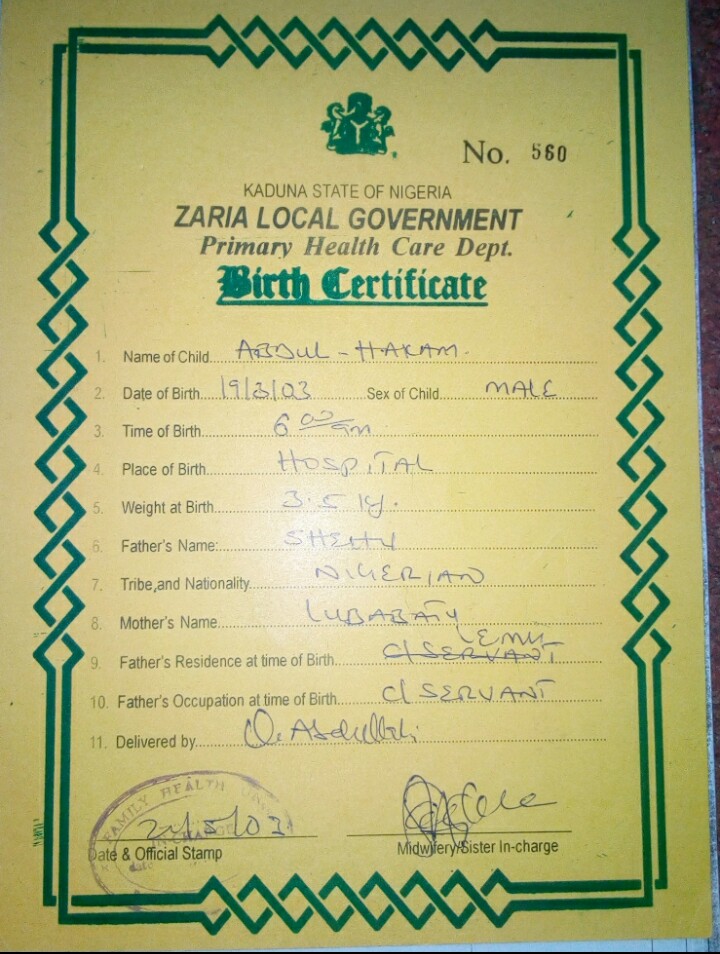 No. 560
KADUNA STATE OF NIGERIA
ZARIA LOCAL GOVERNMENT
Primary Health Care Dept.
Birth Certificate
1. Name of Child ABDUL-HAKAM.
2. Date of Birth 19/3/03 Sex of Child MALE
3. Time of Birth 6 00 am
4. Place of Birth HOSPITAL
5. Weight at Birth 3.5 kg.
6. Father's Name: SHEHU
7. Tribe,and Nationality NIGERIAN
8. Mother's Name LUBABATU
LEMU
9. Father's Residence at time of Birth C/SERVANT
10. Father's Occupation at time of Birth C/SERVANT
11. Delivered by Abdullahi
FAMILY HEALTH
IN CHARGE
Date & Official Stamp
Midwifery/Sister In-charge